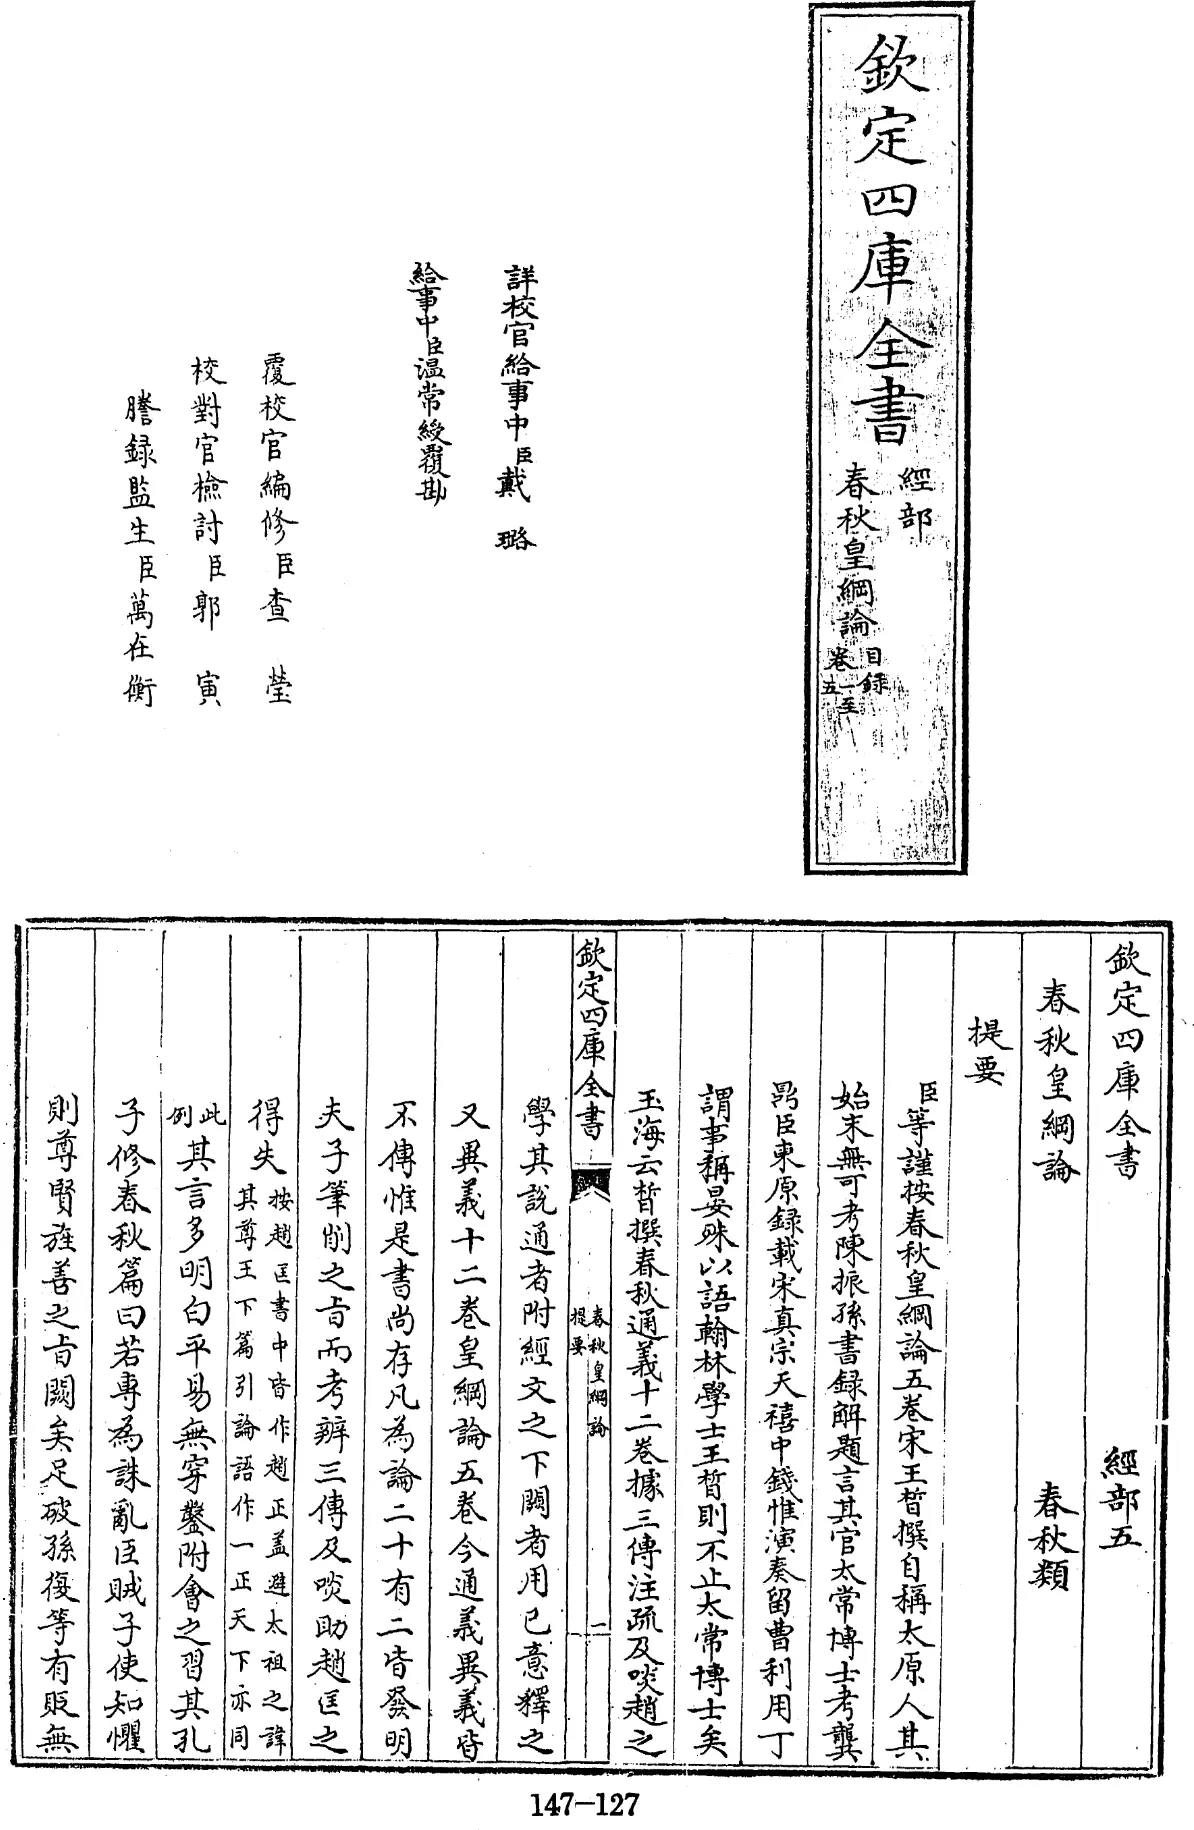 欽定四庫全書
經部
春秋皇綱論
目錄
卷一至
五
詳校官給事中臣戴璐
給事中臣溫常綬覆勘
覆校官編修臣查瑩
校對官檢討臣郭寅
謄錄監生臣萬在衡
欽定四庫全書 經部五
春秋皇綱論 春秋類
提要
臣等謹按春秋皇綱論五卷宋王晳撰自稱太原人其
始末無可考陳振孫書録解題言其官太常博士考龔
鼎臣東原録載宋真宗天禧中錢惟演奏留曹利用丁
謂事稱晏殊以語翰林學士王晳則不止太常博士矣
玉海云晳撰春秋通義十二卷據三傳注疏及啖趙之
欽定四庫全書
春秋皇綱論
提要
二
學其說通者附經文之下闕者用己意釋之
又異義十二卷皇綱論五卷今通義異義皆
不傳惟是書尚存凡為論二十有二皆發明
夫子筆削之旨而考辨三傳及啖助趙匡之
得失
按趙匡書中皆作趙正蓋避太祖之諱
其尊王下篇引論語作一正天下亦同
此
例
其言多明白平易無穿鑿附會之習其孔
子修春秋篇曰若專為誅亂臣賊子使知懼
則尊賢旌善之旨闕矣足破孫復等有貶無
147-127